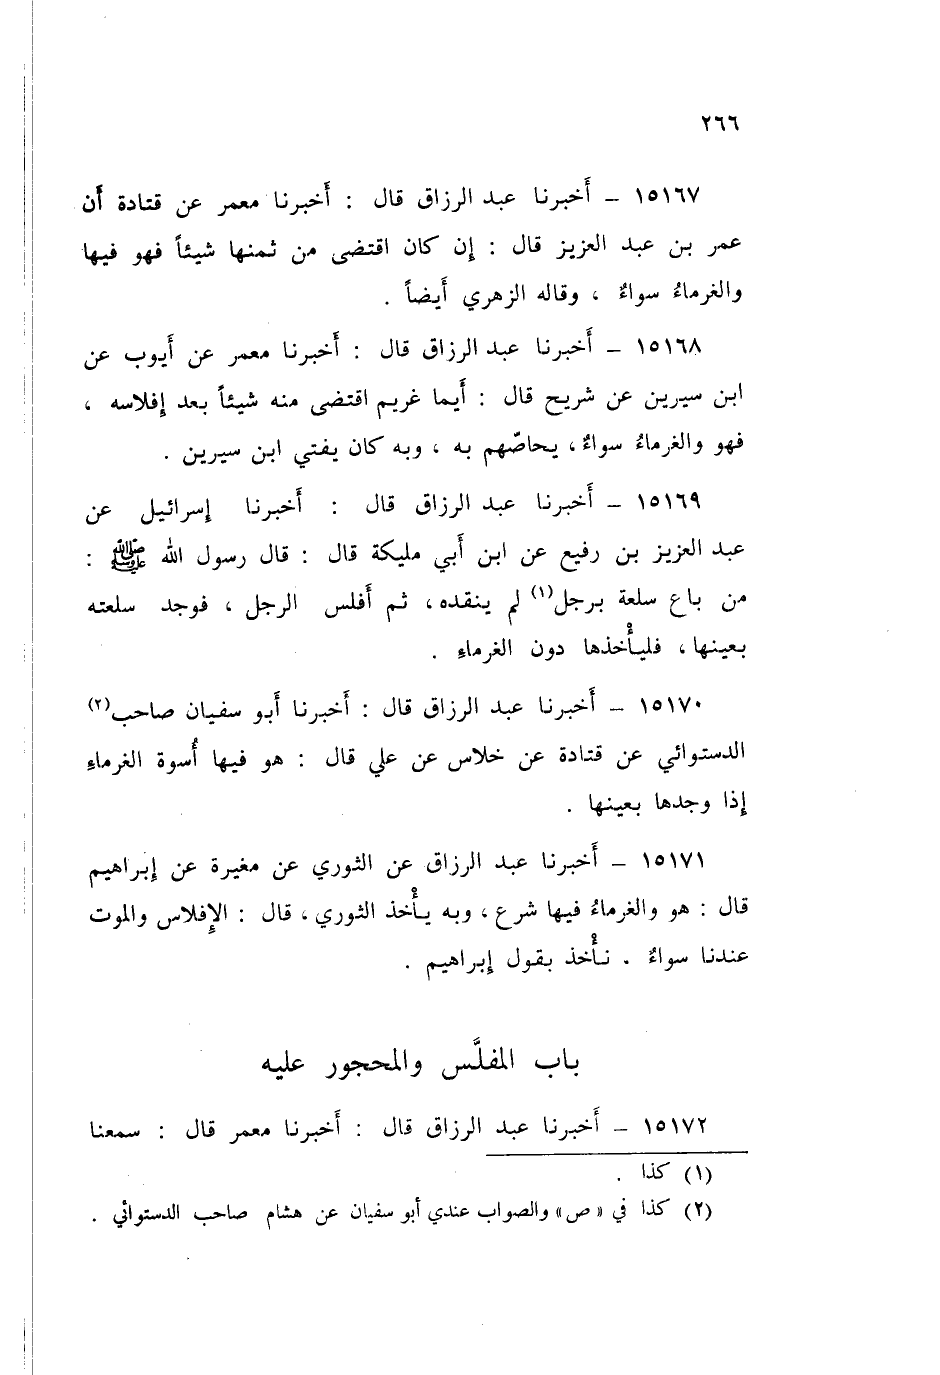 ٢٦٦
١٥١٦٧ – أَخبرنا عبد الرزاق قال : أَخبرنا معمر عن قتادة أَن
عمر بن عبد العزيز قال : إِن كان اقتضى من ثمنها شيئاً فهو فيها
والغرماءُ سواءٌ ، وقاله الزهري أَيضاً .
١٥١٦٨ – أَخبرنا عبد الرزاق قال : أَخبرنا معمر عن أَيوب عن
ابن سيرين عن شريح قال : أَيما غريم اقتضى منه شيئاً بعد إِفلاسه ،
فهو والغرماءُ سواءٌ ، يحاصّهم به ، وبه كان يفتي ابن سيرين .
١٥١٦٩ – أَخبرنا عبد الرزاق قال : أَخبرنا إِسرائيل عن
عبد العزيز بن رفيع عن ابن أَبي مليكة قال : قال رسول الله ﷺ :
من باع سلعة برجل(١) لم ينقده ، ثم أَفلس الرجل ، فوجد سلعته
بعينها ، فليأْخذها دون الغرماءِ .
١٥١٧٠ – أَخبرنا عبد الرزاق قال : أَخبرنا أَبو سفيان صاحب(٢)
الدستوائي عن قتادة عن خلاس عن علي قال : هو فيها أُسوة الغرماءِ
إِذا وجدها بعينها .
١٥١٧١ – أَخبرنا عبد الرزاق عن الثوري عن مغيرة عن إِبراهيم
قال : هو والغرماءُ فيها شرع ، وبه يأْخذ الثوري ، قال : الإِفلاس والموت
عندنا سواءٌ . نأْخذ بقول إِبراهيم .
باب المفلَّس والمحجور عليه
١٥١٧٢ – أَخبرنا عبد الرزاق قال : أَخبرنا معمر قال : سمعنا
(١) كذا .
(٢) كذا في « ص » والصواب عندي أبو سفيان عن هشام صاحب الدستوائي .